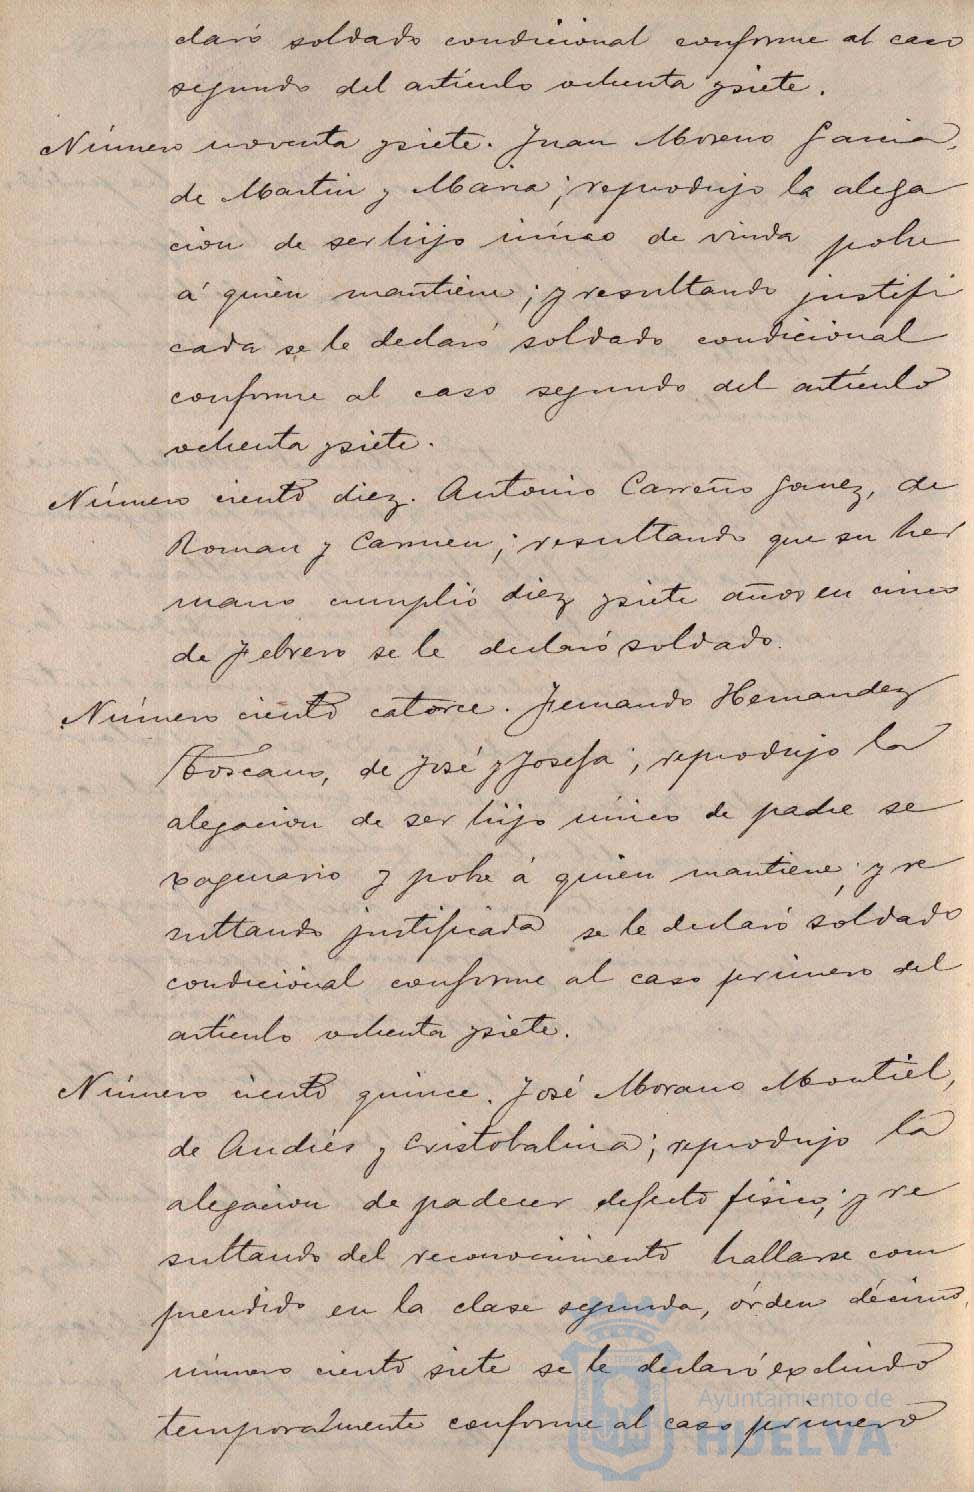 claró soldado condicional conforme al caso
segundo del artículo ochenta y siete.
Número noventa y siete. Juan Moreno Garcia,
de Martin y Maria; reprodujo la alega
cion de ser hijo único de viuda pobre
á quien mantiene; y resultando justifi
cada se le declaró soldado condicional
conforme al caso segundo del artículo
ochenta y siete.
Número ciento diez. Antonio Carreño Gomez, de
Roman y Carmen; resultando que su her
mano cumplió diez y siete años en cinco
de Febrero se le declaró soldado.
Número ciento catorce. Fernando Hernandez
Toscano, de José y Josefa; reprodujo la
alegacion de ser hijo único de padre se
xagenario y pobre á quien mantiene; y re
sultando justificada se le declaró soldado
condicional conforme al caso primero del
artículo ochenta y siete.
Número ciento quince. José Morano Montiel,
de Andrés y Cristobalina; reprodujo la
alegacion de padecer defecto físico; y re
sultando del reconocimiento hallarse com
prendido en la clase segunda, órden décimo,
número ciento siete se le declaró excluido
temporalmente conforme al caso primero
Ayuntamiento de
HUELVA